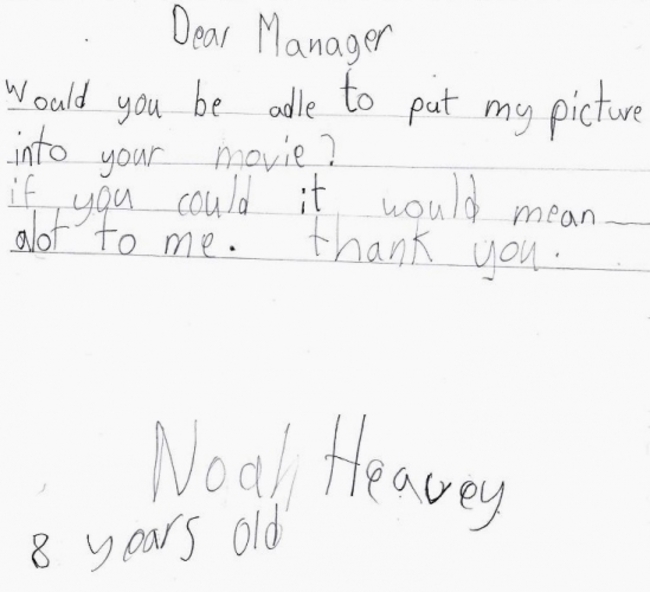 Dear Manager
Would you be adle to put my picture
into your movie?
if you could it would mean
alot to me. thank you.
Noah Heavey
8 years old